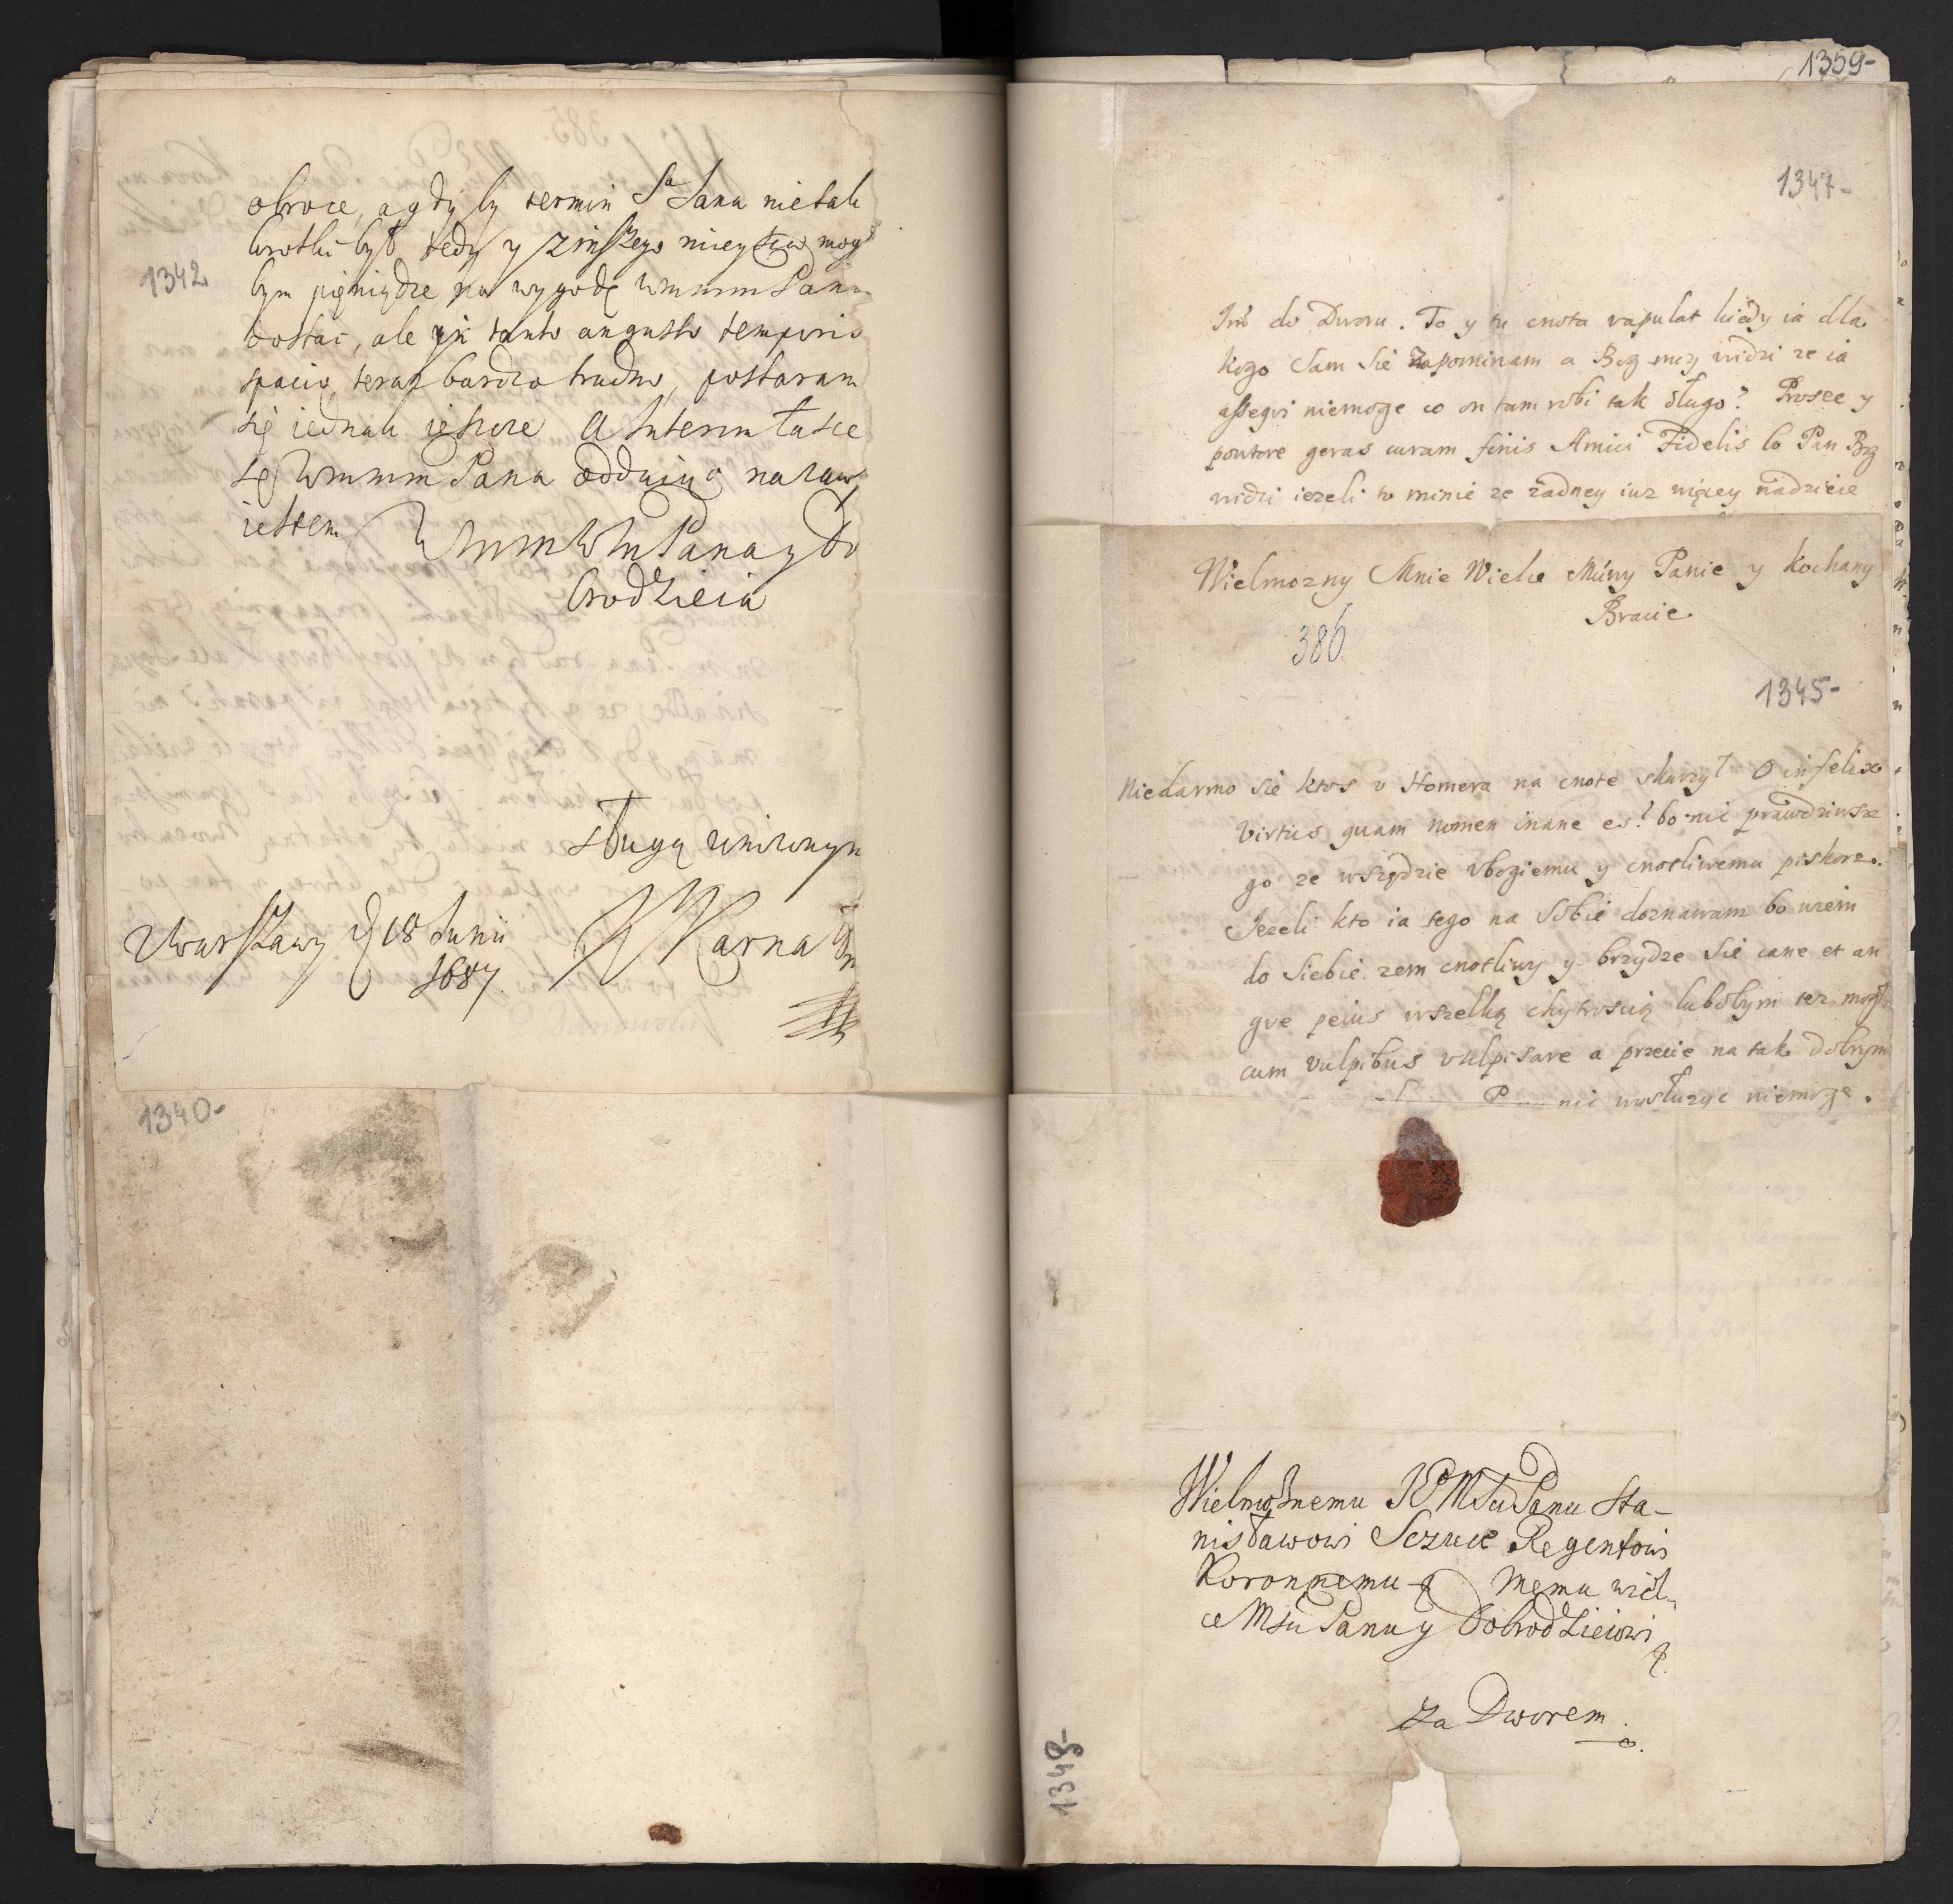 obroce, a gdy by termin S^a Jana nie tak
krotki był, tedy y z inszego mieysca mogł
1342
bym pięniądze na wygodę wmmm Pana
dostać, ale in tanto angusto temporis
spacio, teraz bardzo trudno, postaram
się iednak ieszcze a Interim łasce
się Wmmm Pana oddaiąc na zawsze
iestem
Wmm Wm Pana y Do
brodzieia
sługą uniżonym
Zwarszawy d 18 Junii
1687.
1340-
1359-
1347-
Imś do Dworu. To y tu cnota vapulat kiedy ia dla
kogo sam sie zapominam a Bog moy widzi ze ia
assequi niemoge co on tam robi tak długo? Prosze y
powtore geras curam finis Amici Fidelis bo Pan Bog
widzi iezeli to minie ze żadney iuz więcey nadzieie
Wielmozny Mnie Wielce Mćiwy Panie y Kochany
Bracie
386
1345-
Niedarmo sie ktos u Homera na cnote skarzył O infelix
virtus quam nomen inane es? bo nic prawdziwsze
go ze wszędzie vbogiemu y cnotliwemu piskorz.
Jezeli kto ia tego na sobie doznawam bo wiem
do siebie zem cnotliwy y brzydze sie cane et an
gve peius wszelką chytrością lubobym tez mogł
cum vulpibus vulpisare a przecie na tak dobrym
nic wysłuzyc niemoge.
Wielmożnemu JEMSu Panu Sta-
nisławowi Sczuce Regentowi
Koronnemu Memu wiel-
ce Msu Panu y Dobrodzieiowi
Za Dworem.
1348-